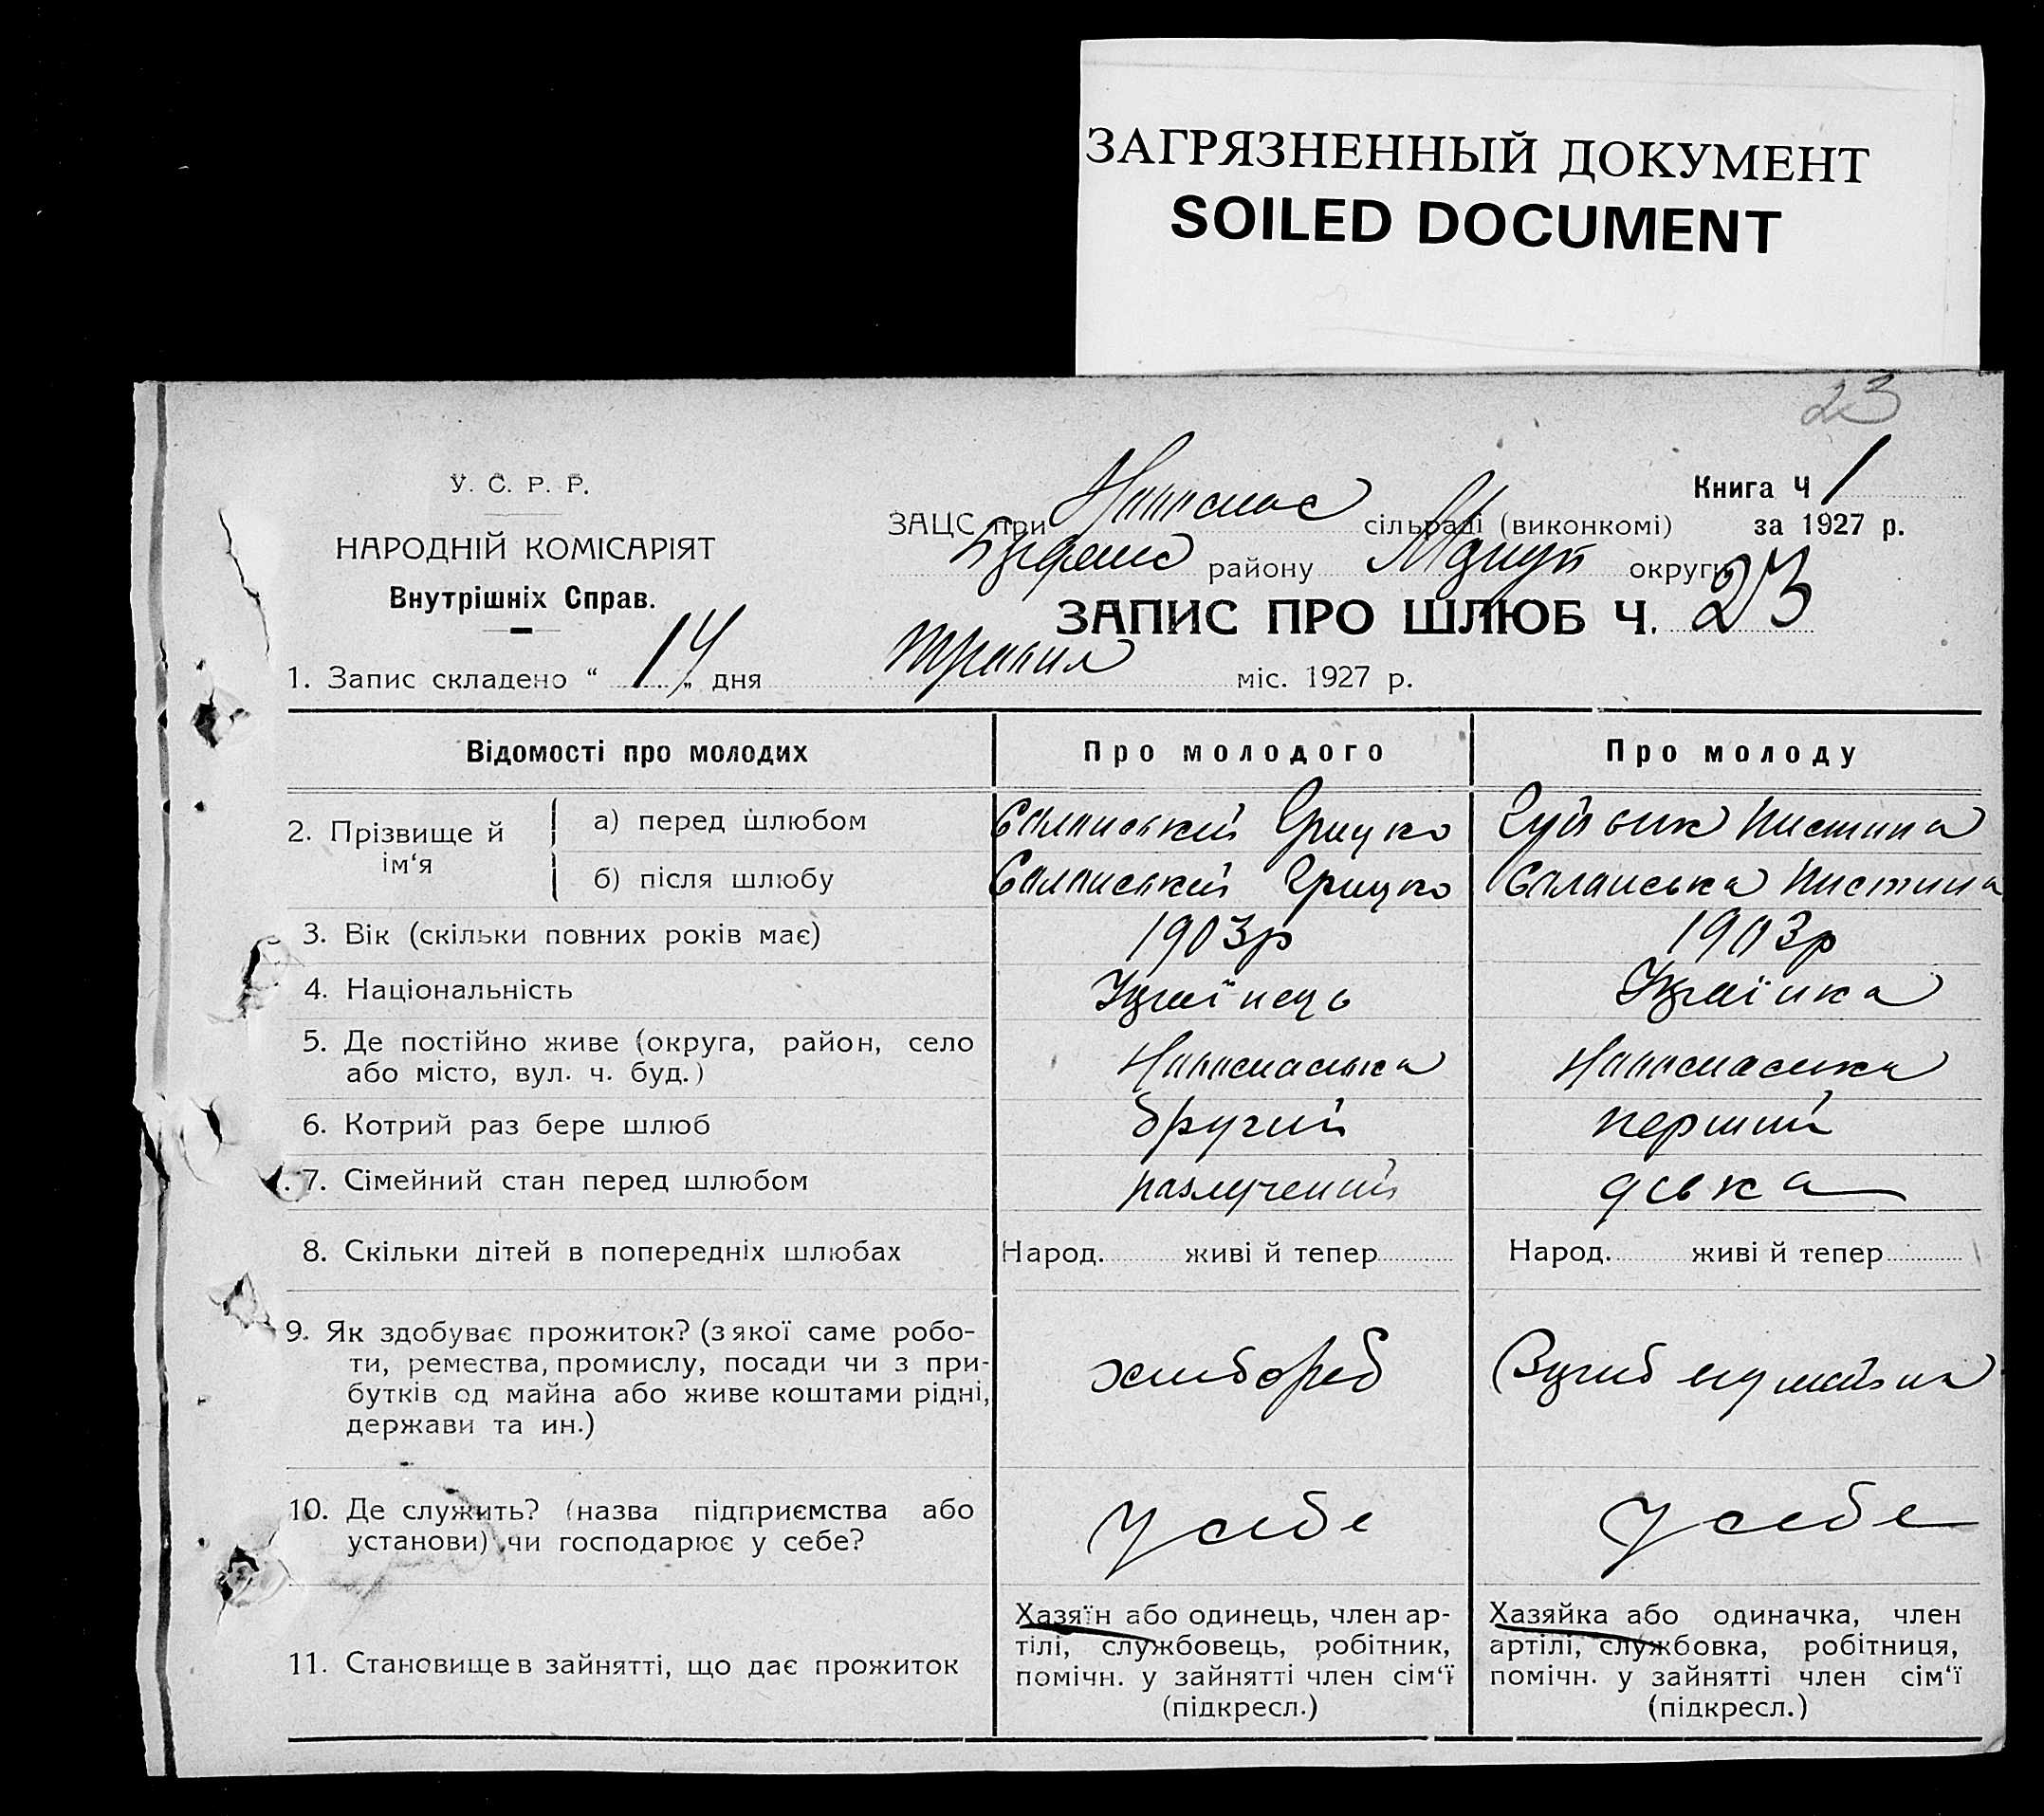 ЗАГРЯЗНЕННЫЙ ДОКУМЕНТ
SOILED DOCUMENT
23
У. С. Р. Р.
НАРОДНІЙ КОМІСАРІЯТ
Внутрішніх Справ.
Книга Ч 1
за 1927 р.
ЗАЦС при сільраді (виконкомі)
району округи
ЗАПИС ПРО ШЛЮБ Ч. 23
1. Запис складено “ 14 „ дня травня міс. 1927 р.
Відомості про молодих Про молодого Про молоду
2. Прізвище й ім‘я
а) перед шлюбом Грицко
б) після шлюбу Грицко
3. Вік (скільки повних років має) 1903р 1903р
4. Національність Україиець Українка
5. Де постійно живе (округа, район, село
або місто, вул. ч. буд.)
6. Котрий раз бере шлюб другий перший
7. Сімейний стан перед шлюбом разлучений дівка
8. Скільки дітей в попередніх шлюбах Народ. живі й тепер Народ. живі й тепер
9. Як здобуває прожиток? (з якої саме робо-
ти, ремества, промислу, посади чи з при-
бутків од майна або живе коштами рідні,
держави та ин.)
хлибороб
10. Де служить? (назва підприємства або
установи) чи господарює у себе?
У себе У себе
11. Становище в зайнятті, що дає прожиток
Хазяїн або одинець, член ар-
тілі, службовець, робітник,
помічн. у зайнятті член сім‘ї
(підкресл.)
Хазяйка або одиначка, член
артілі, службовка, робітниця,
помічн. у зайнятті член сім‘ї
(підкресл.)